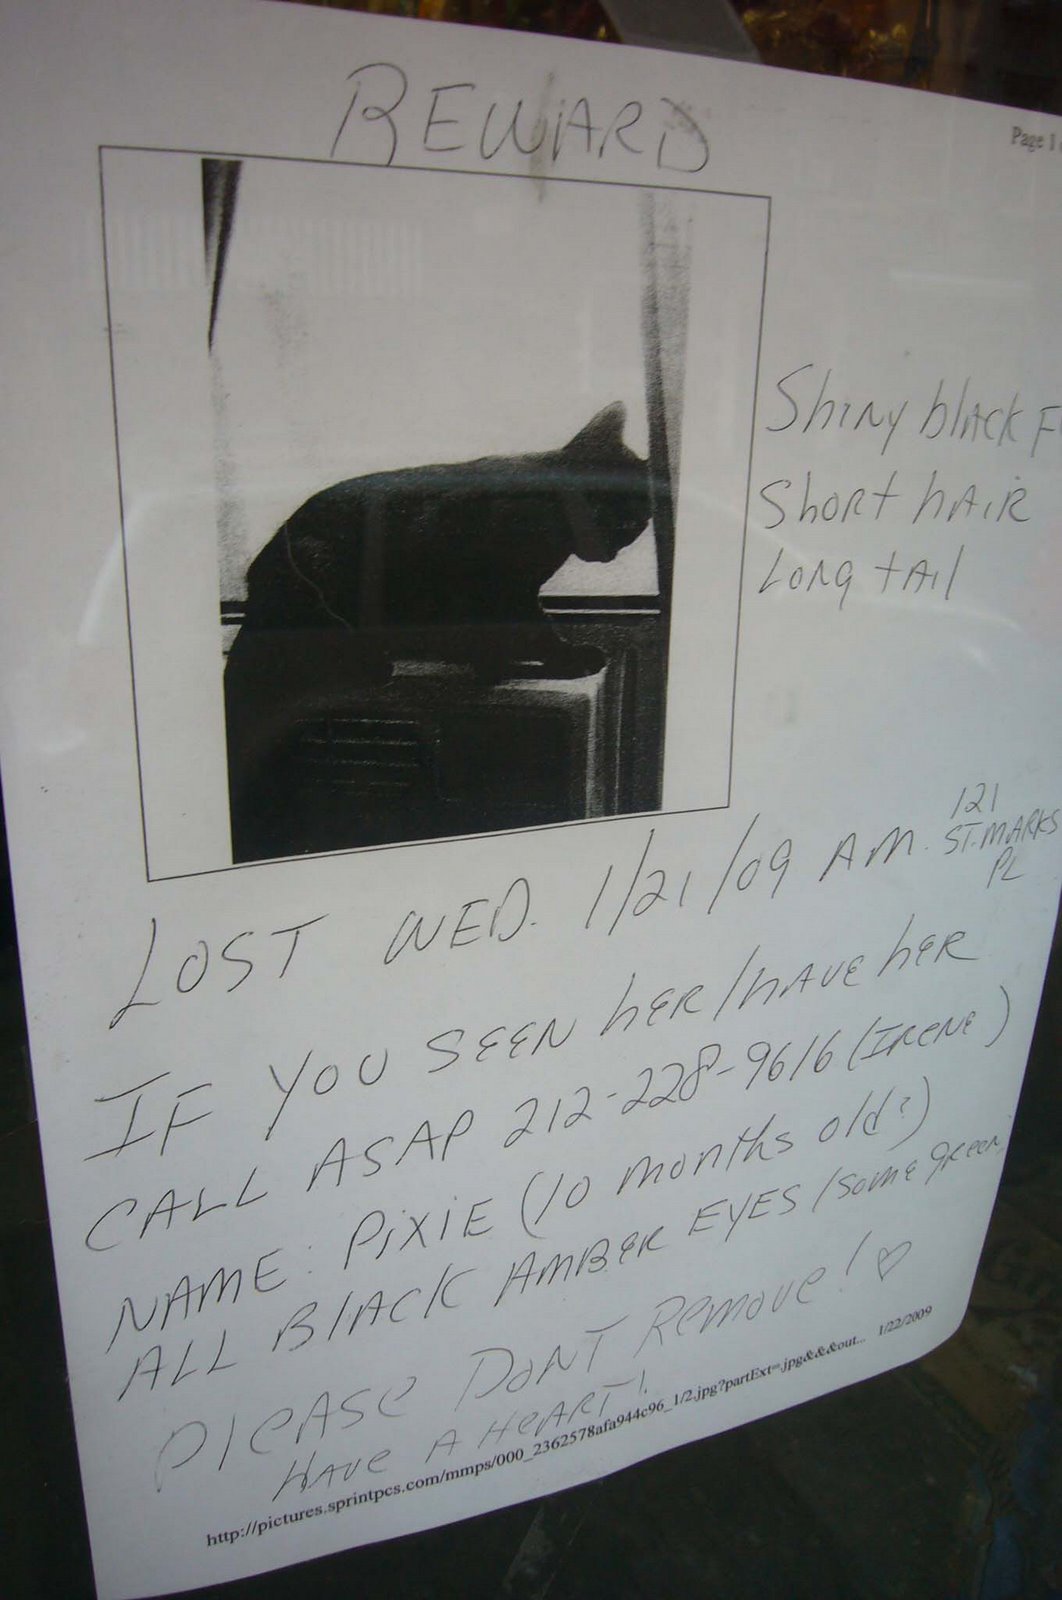 REWARD
Page 1
Shiny black F
Short hair
Long tail
LOST WED. 1/21/09 A.M.
121
ST. MARKS
PL
IF YOU SEEN hER/hAVE hER
CALL ASAP 212-228-9616 (IRENE)
NAME: PIXIE (10 months old?)
ALL BLACK AMBER EYES /some green
PLEASE DONT Remove! ♡
HAVE A HEART!
http://pictures.sprintpcs.com/mmps/000_2362578afa944c96_1/2.jpg?partExt=.jpg&&&out... 1/22/2009